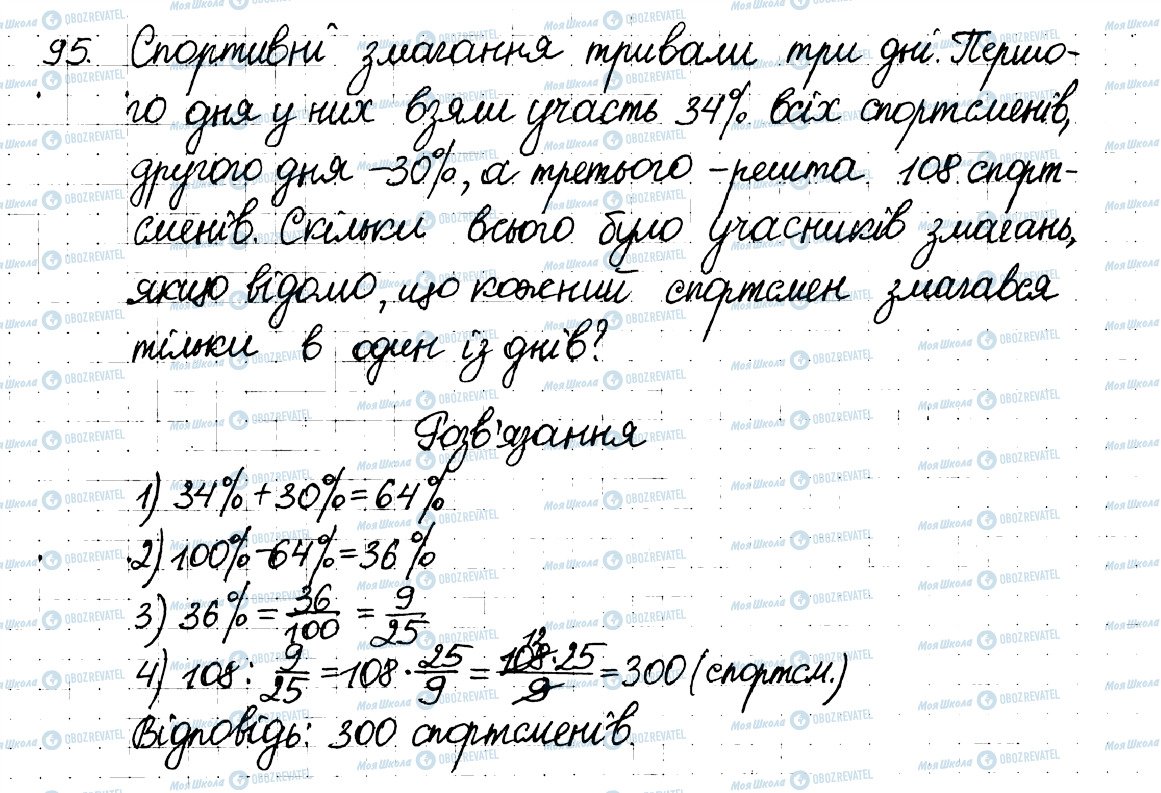 95. Спортивні змагання тривали три дні. Першо-
го дня у них взяли участь 34% всіх спортсменів,
другого дня – 30%, а третього – решта 108 спорт-
сменів. Скільки всього було учасників змагань,
якщо відомо, що кожний спортсмен змагався
тільки в один із днів?
Розв'язання
1) 34% + 30% = 64%
2) 100% – 64% = 36%
3) 36% = 36/100 = 9/25
4) 108 : 9/25 = 108 · 25/9 = 12 108·25/9 = 300 (спортсм.)
Відповідь: 300 спортсменів.
Моя Школа OBOZREVATEL